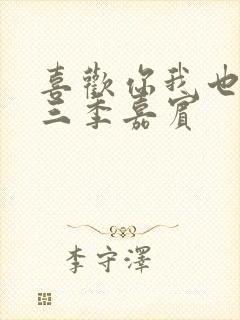 喜歡你我也
三季嘉賓
李守澤